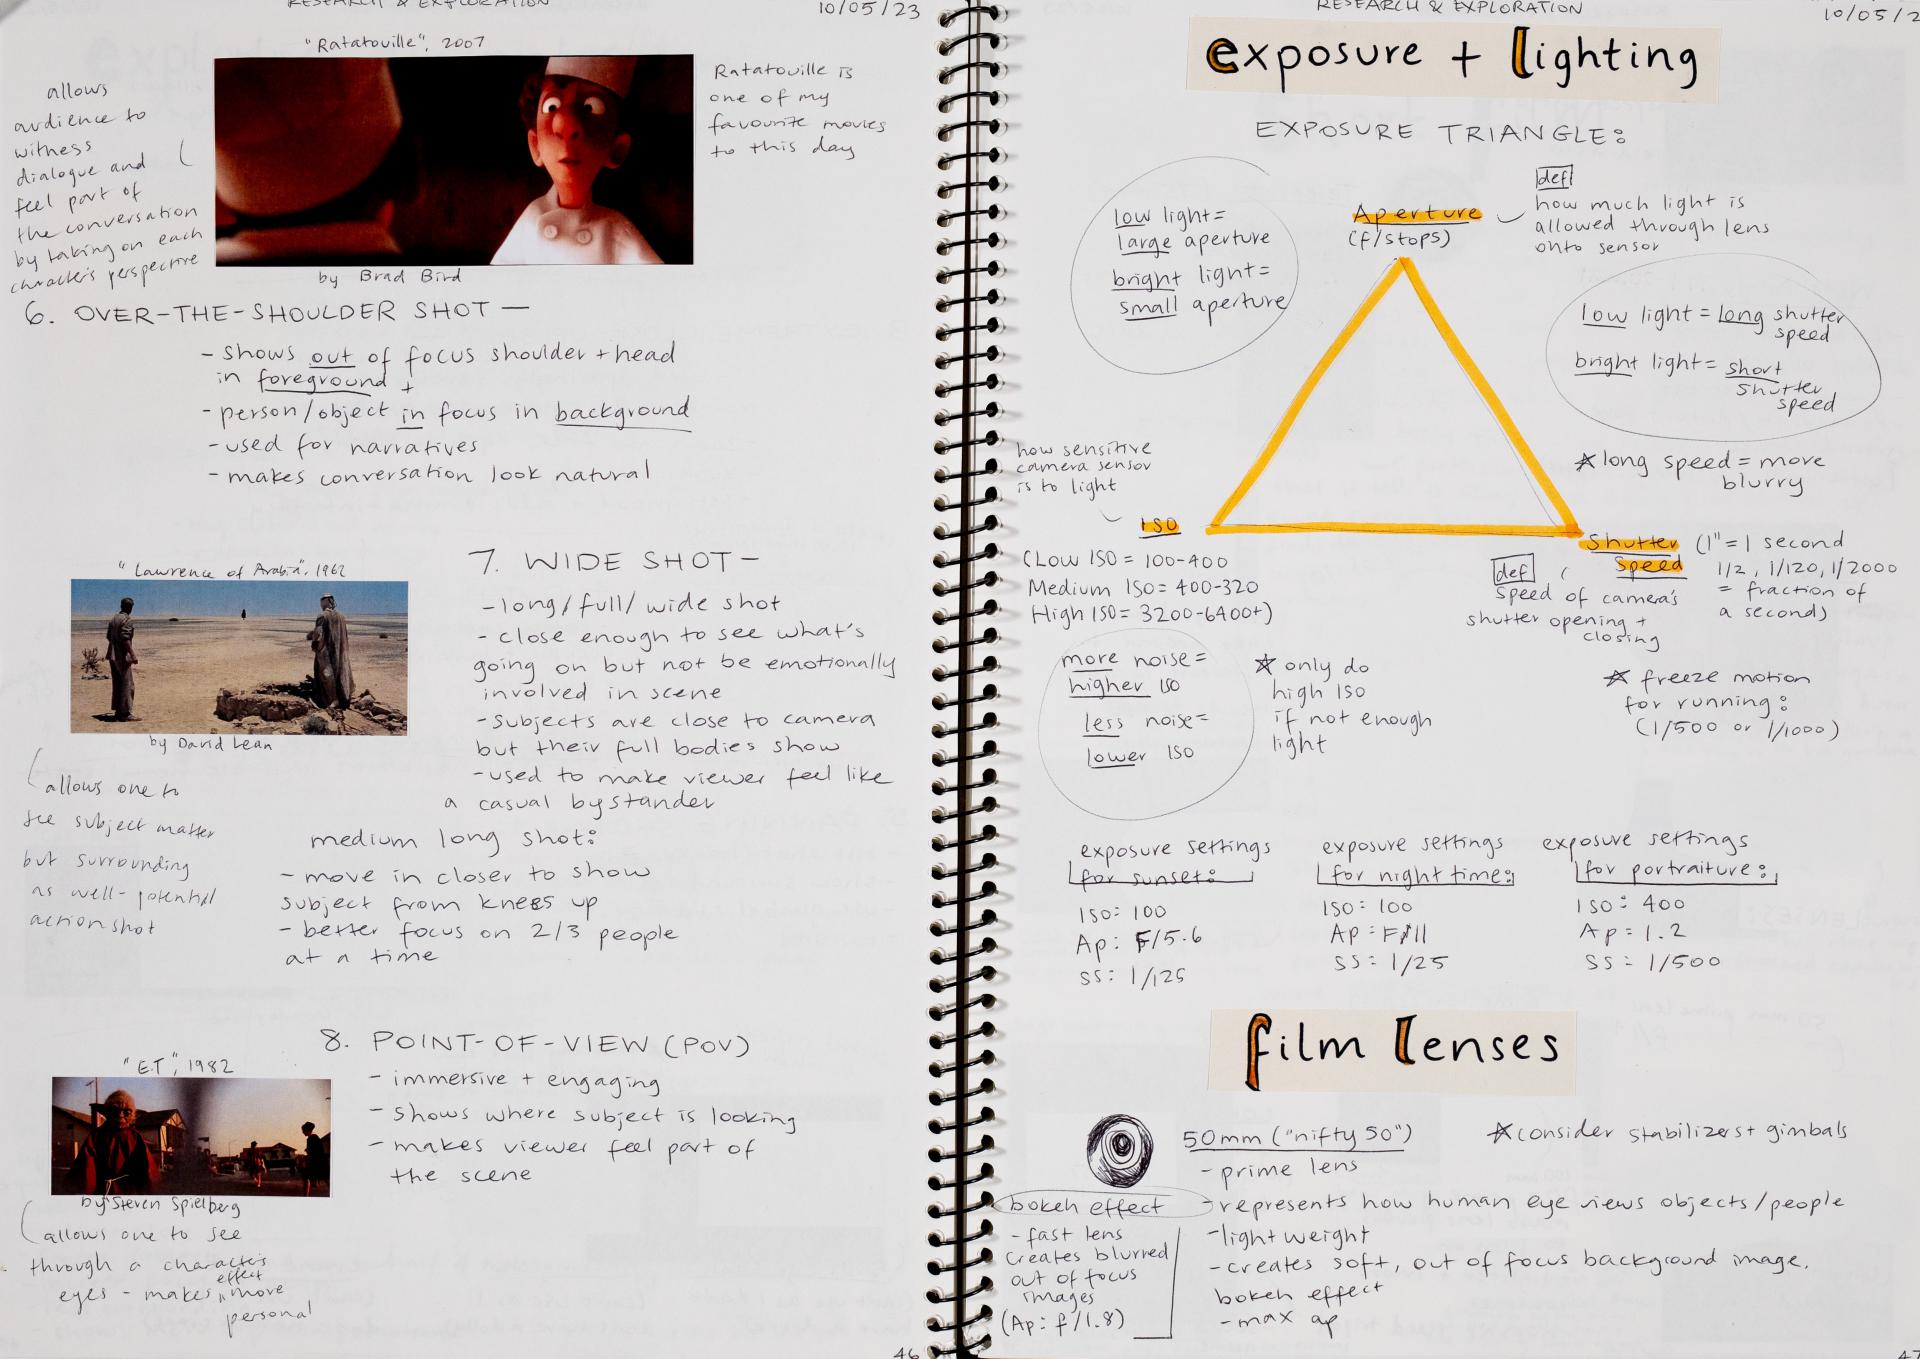 RESEARCH & EXPLORATION
10/05/23
"Ratatouille", 2007
allows
audience to
witness
dialogue and
feel part of
the conversation
by taking on each
character's perspective
Ratatouille is
one of my
favourite movies
to this day
by Brad Bird
6. OVER-THE-SHOULDER SHOT —
- shows out of focus shoulder + head
in foreground +
- person/object in focus in background
- used for narratives
- makes conversation look natural
"Lawrence of Arabia", 1962
by David Lean
allows one to
see subject matter
but surrounding
as well - potential
action shot
7. WIDE SHOT —
- long/full/wide shot
- close enough to see what's
going on but not be emotionally
involved in scene
- subjects are close to camera
but their full bodies show
- used to make viewer feel like
a casual bystander
medium long shot:
- move in closer to show
subject from knees up
- better focus on 2/3 people
at a time
8. POINT-OF-VIEW (POV)
- immersive + engaging
- shows where subject is looking
- makes viewer feel part of
the scene
"E.T", 1982
by Steven Spielberg
allows one to see
through a character's
eyes - makes effect more
personal
46
RESEARCH & EXPLORATION
10/05/2
exposure + lighting
EXPOSURE TRIANGLE:
low light =
large aperture
bright light =
small aperture
Aperture
(f/stops)
def
how much light is
allowed through lens
onto sensor
low light = long shutter
speed
bright light = short
shutter
speed
* long speed = more
blurry
how sensitive
camera sensor
is to light
ISO
(Low ISO = 100-400
Medium ISO = 400-320
High ISO = 3200-6400+)
Shutter
Speed
(1" = 1 second
1/2, 1/120, 1/2000
= fraction of
a second)
def
Speed of camera's
shutter opening +
closing
more noise =
higher ISO
less noise =
lower ISO
* only do
high ISO
if not enough
light
* freeze motion
for running:
(1/500 or 1/1000)
exposure settings
for sunset:
ISO: 100
Ap: F/5.6
SS: 1/125
exposure settings
for night time:
ISO: 100
Ap = F/11
SS: 1/25
exposure settings
for portraiture:
ISO: 400
Ap = 1.2
SS = 1/500
film lenses
50mm ("nifty 50")
- prime lens
- represents how human eye views objects/people
- light weight
- creates soft, out of focus background image.
bokeh effect
- max ap
* consider stabilizers + gimbals
bokeh effect
- fast lens
creates blurred
out of focus
images
(Ap: f/1.8)
47